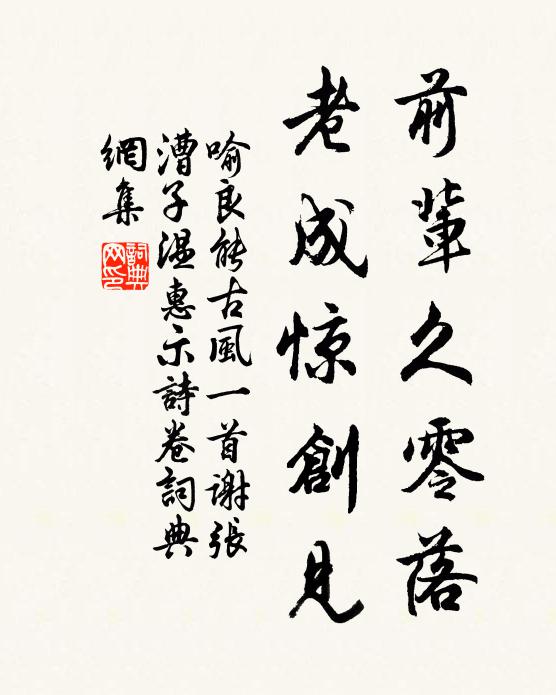 前輩久零落
老成惊創見
喻良能古風一首谢張
漕子温惠示詩卷詞典
網集
詞典网印